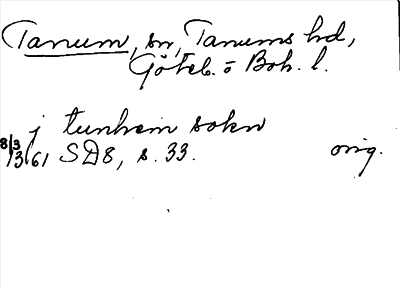 Tanum, sn, Tanums hd,
Göteb. o Boh. l.
j tunhem sokn
8/3 1361 SD8, s. 33. orig.